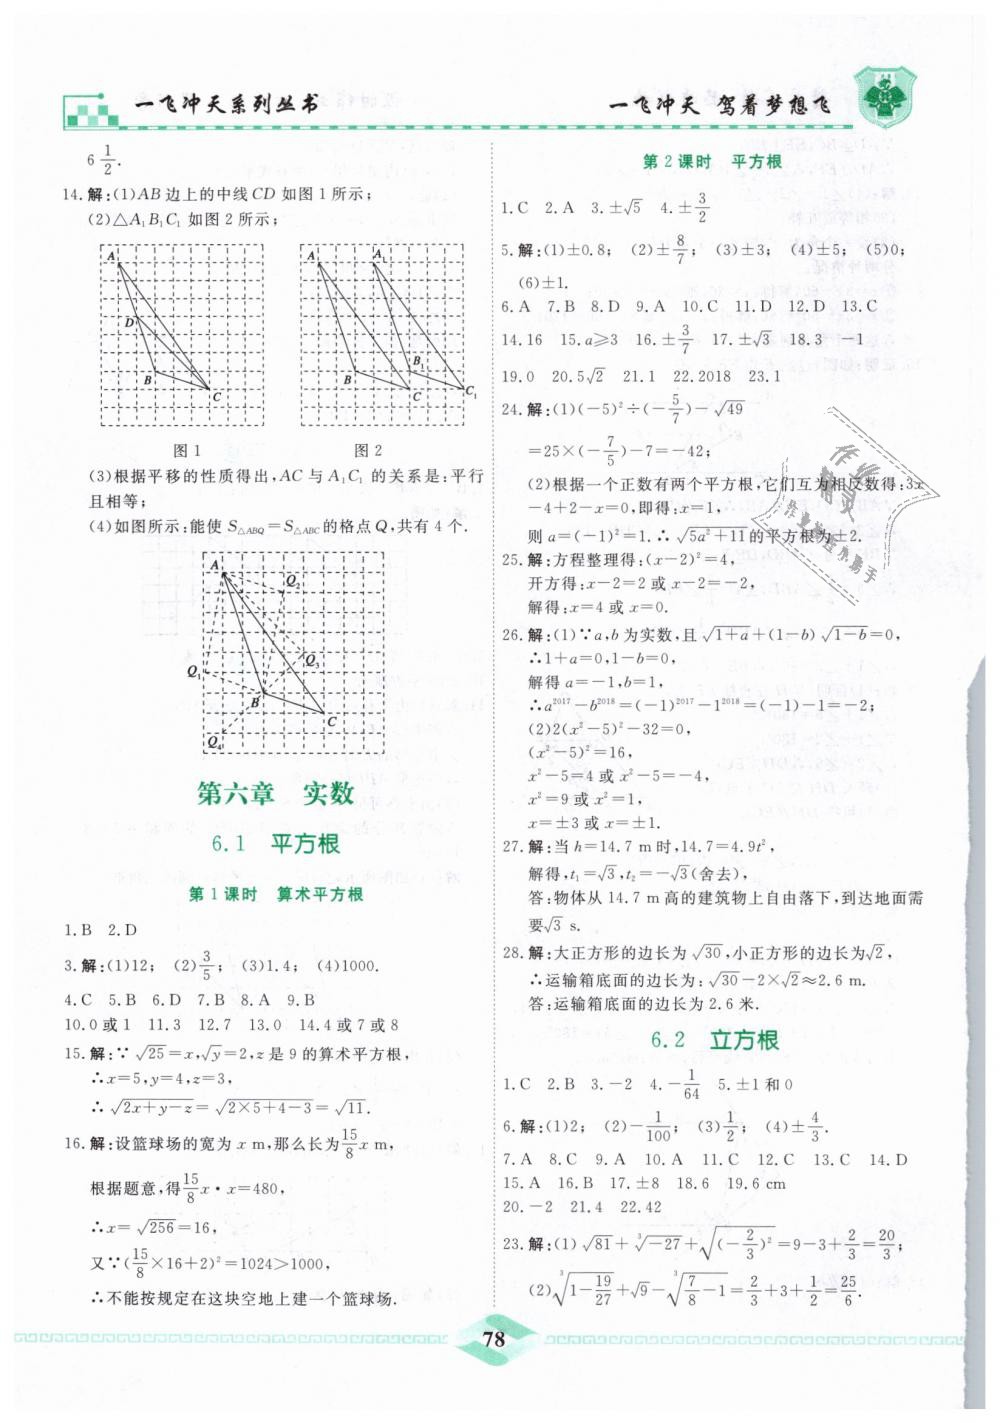 一飞冲天系列丛书
一飞冲天 驾着梦想飞
6 1/2.
14.解:(1)AB边上的中线CD如图1所示;
(2)△A₁B₁C₁如图2所示;
A
D
B
C
A
A₁
B
B₁
C
C₁
图1
图2
(3)根据平移的性质得出,AC与A₁C₁的关系是:平行
且相等;
(4)如图所示:能使S△ABQ=S△ABC的格点Q,共有4个.
A
Q₂
Q₃
Q₁
B
C
Q₄
第六章 实数
6.1 平方根
第1课时 算术平方根
1.B 2.D
3.解:(1)12; (2)3/5; (3)1.4; (4)1000.
4.C 5.B 6.D 7.B 8.A 9.B
10.0或1 11.3 12.7 13.0 14.4或7或8
15.解:∵√25=x,√y=2,z是9的算术平方根,
∴x=5,y=4,z=3,
∴√(2x+y-z)=√(2×5+4-3)=√11.
16.解:设篮球场的宽为x m,那么长为15/8 x m,
根据题意,得15/8 x·x=480,
∴x=√256=16,
又∵(15/8×16+2)²=1024>1000,
∴不能按规定在这块空地上建一个篮球场.
第2课时 平方根
1.C 2.A 3.±√5 4.±3/2
5.解:(1)±0.8; (2)±8/7; (3)±3; (4)±5; (5)0;
(6)±1.
6.A 7.B 8.D 9.A 10.C 11.D 12.D 13.C
14.16 15.a≥3 16.±3/7 17.±√3 18.3 -1
19.0 20.5√2 21.1 22.2018 23.1
24.解:(1)(-5)²÷(-5/7)-√49
=25×(-7/5)-7=-42;
(2)根据一个正数有两个平方根,它们互为相反数得:3x
-4+2-x=0,即得:x=1,
则a=(-1)²=1.∴√(5a²+11)的平方根为±2.
25.解:方程整理得:(x-2)²=4,
开方得:x-2=2或x-2=-2,
解得:x=4或x=0.
26.解:(1)∵a,b为实数,且√(1+a)+(1-b)√(1-b)=0,
∴1+a=0,1-b=0,
解得a=-1,b=1,
∴a²⁰¹⁷-b²⁰¹⁸=(-1)²⁰¹⁷-1²⁰¹⁸=(-1)-1=-2;
(2)2(x²-5)²-32=0,
(x²-5)²=16,
x²-5=4或x²-5=-4,
x²=9或x²=1,
x=±3或x=±1.
27.解:当h=14.7 m时,14.7=4.9t²,
解得,t₁=√3,t₂=-√3(舍去),
答:物体从14.7 m高的建筑物上自由落下,到达地面需
要√3 s.
28.解:大正方形的边长为√30,小正方形的边长为√2,
∴运输箱底面的边长为:√30-2×√2≈2.6 m.
答:运输箱底面的边长为2.6米.
6.2 立方根
1.C 2.B 3.-2 4.-1/64 5.±1和0
6.解:(1)2; (2)-1/100; (3)1/2; (4)±4/3.
7.A 8.C 9.A 10.A 11.C 12.C 13.C 14.D
15.A 16.B 17.±8 18.6 19.6 cm
20.-2 21.4 22.42
23.解:(1)√81+∛-27+√(-2/3)²=9-3+2/3=20/3;
(2)∛(1-19/27)+√9-∛(7/8-1)=2/3+3+1/2=25/6.
78